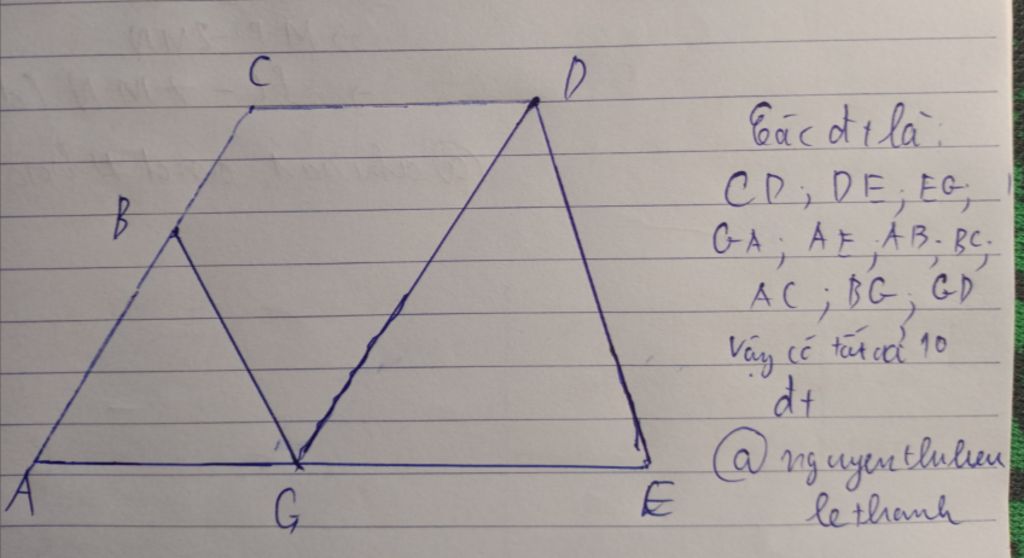 C
D
B
A
G
E
Các đt là:
CD; DE; EG;
GA; AE; AB; BC;
AC; BG; GD
Vậy có tất cả 10
đt
@ nguyenthuhien
lethanh